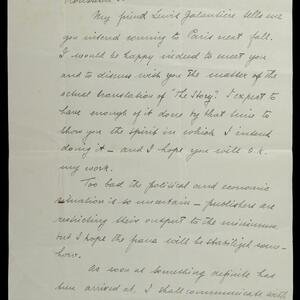 My friend Lewis Galantière tells me
you intend coming to Paris next fall.
I would be happy indeed to meet you
and to discuss with you the matter of the
actual translation of "The Story". I expect to
have enough of it done by that time to
show you the spirit in which I intend
doing it – and I hope you will O.K.
my work.
Too bad the political and economic
situation is so uncertain – publishers are
restricting their output to the minimum,
but I hope the franc will be stabilized some-
how.
As soon as something definite has
been arrived at, I shall communicate with